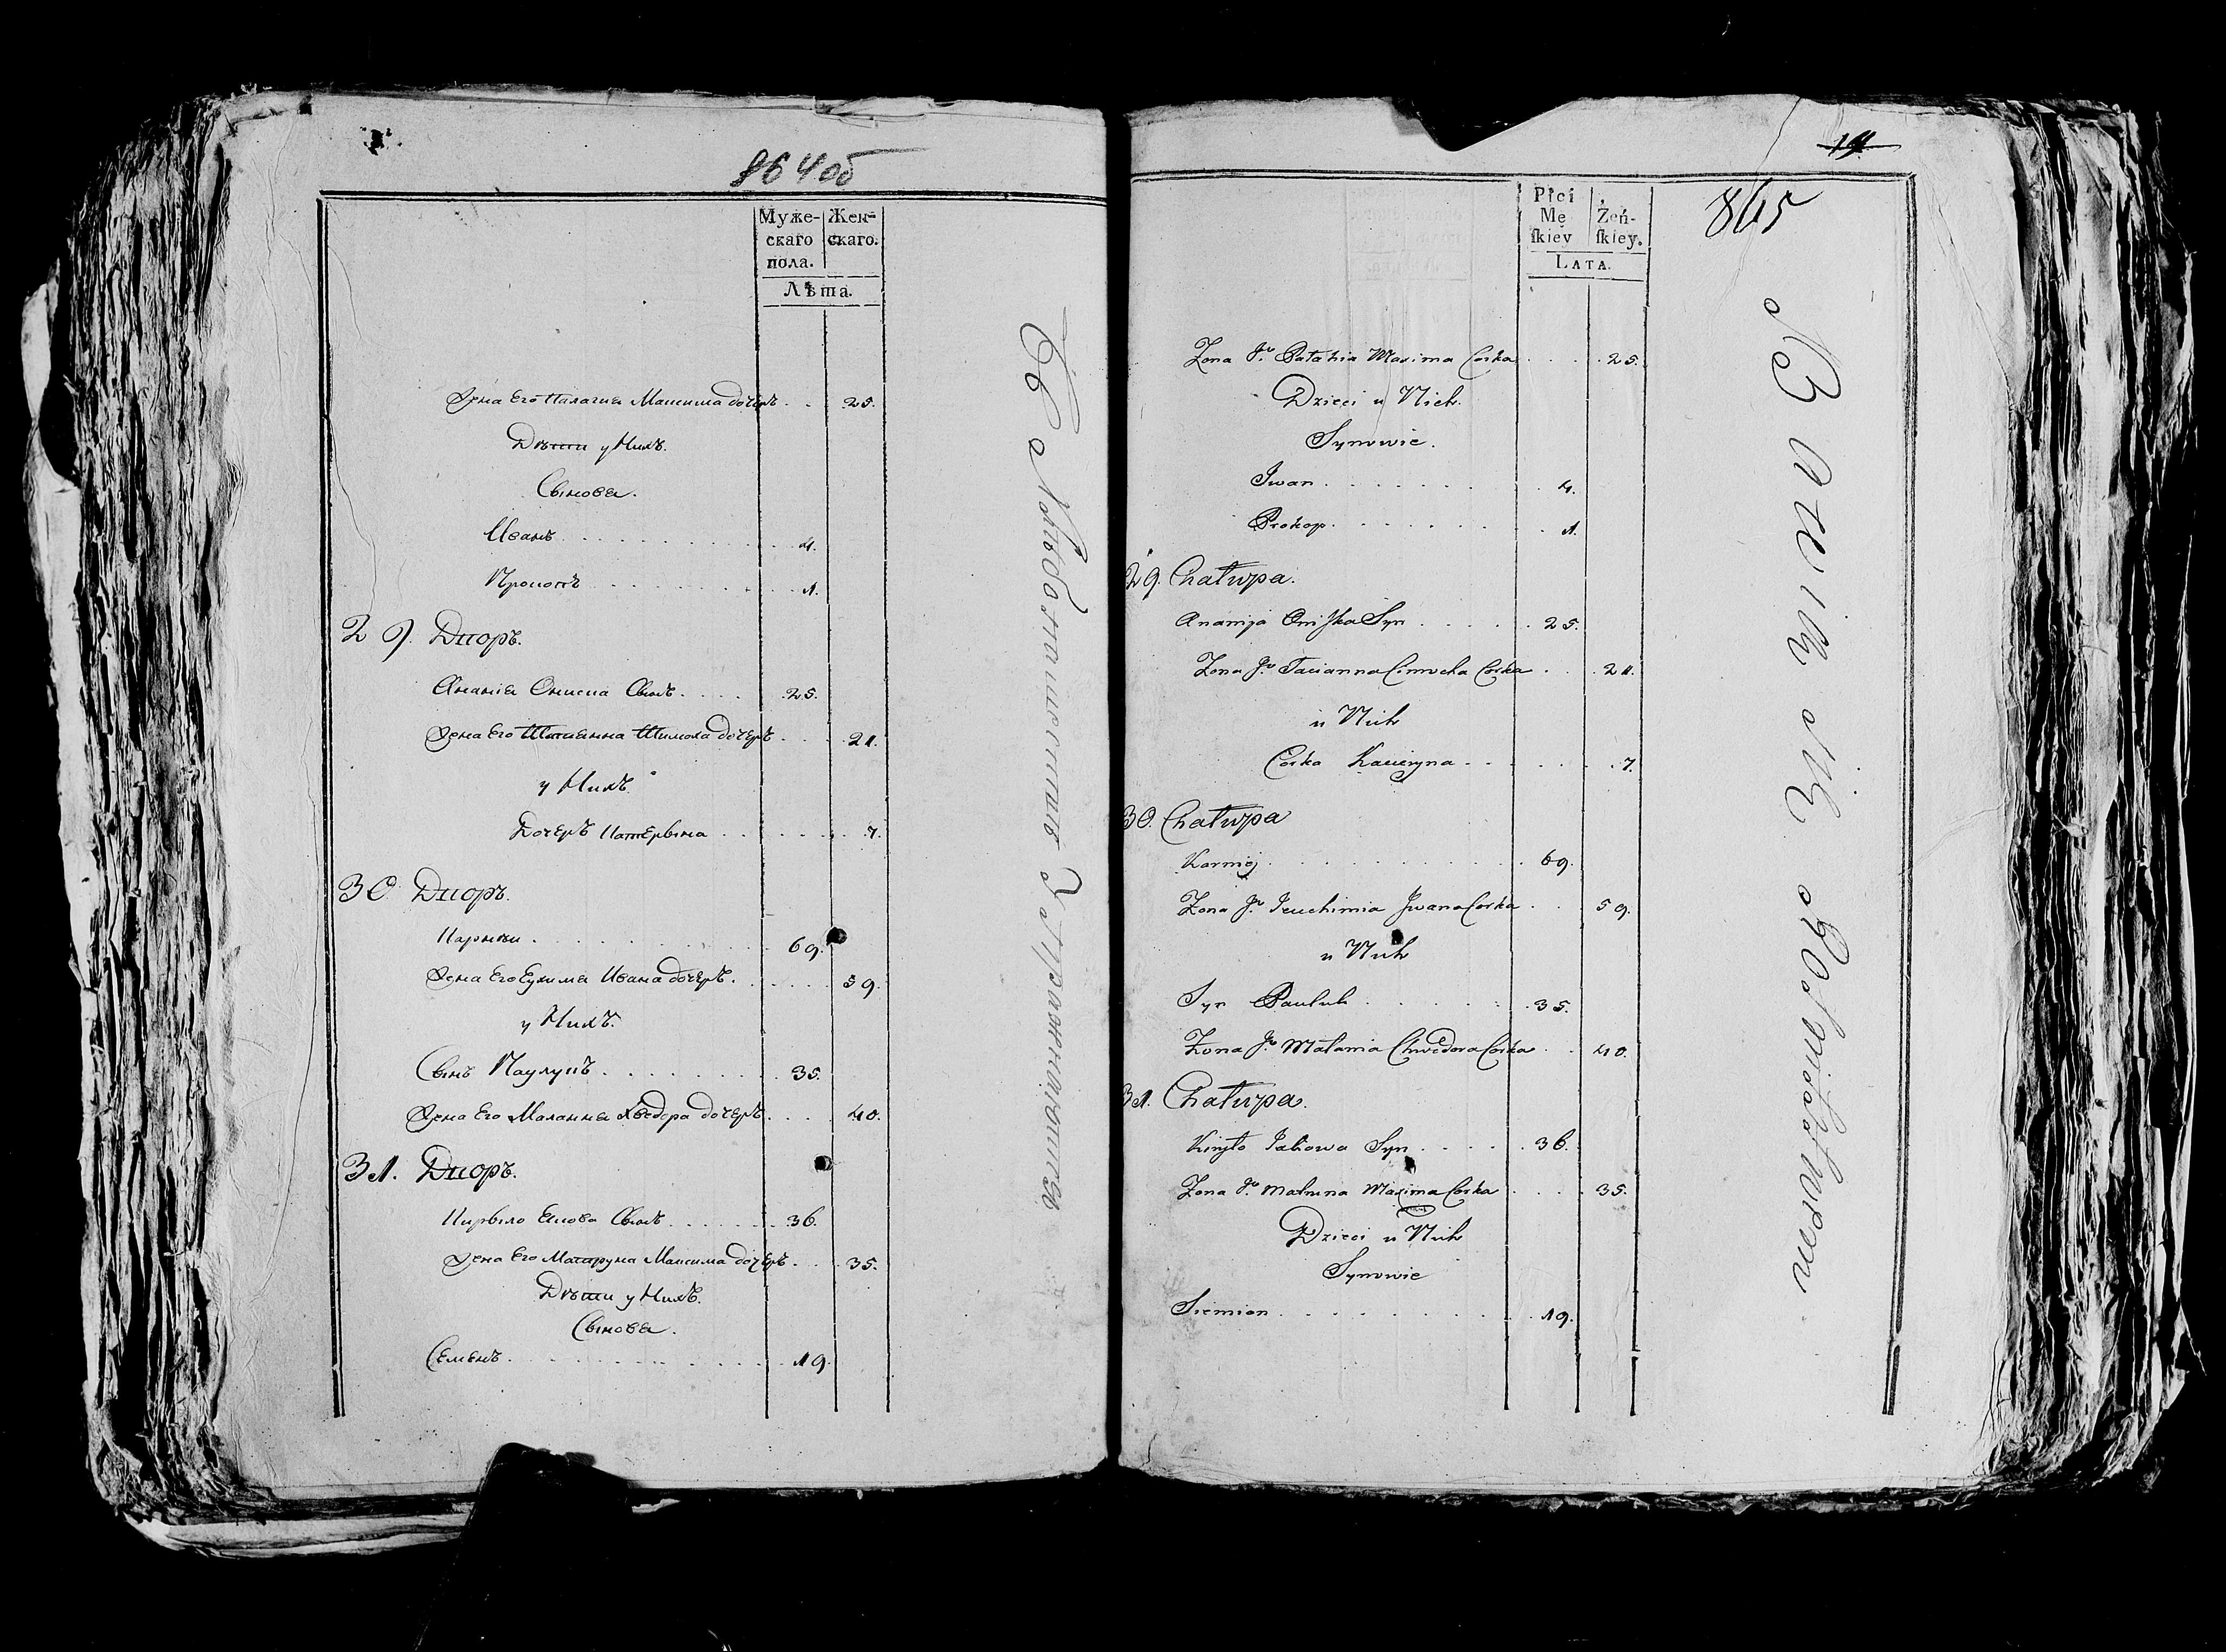 864 об
Муже-скаго пола. Жен-скаго.
Лѣта.
Жена Его Палагия Максима дочерь . . 25.
Дѣти у Нихъ.
Сынове.
Иванъ . . . 4.
Прокопъ . . . 1.
29. Дworъ.
Анания Ониска Сынъ . . . 25.
Жена Его Татьянна Тимоха дочерь . . . 21.
у Нихъ
Дочерь Катерына . . . 7.
30 Дворъ.
Карнѣи . . . 69.
Жена Его Еухимя Ивана дочерь . . . 59.
у Нихъ.
Сынъ Паулукъ . . . 35.
Жена Его Малання Хведора дочерь . . . 40.
31. Дворъ.
Кирыло Екова Сынъ . . . 36.
Жена Его Матруна Максима дочерь . . . 35.
Дѣти у Нихъ.
Сынова.
Семенъ . . . 19.
19
865
Płci Mę skiey Zeń-skiey.
LATA.
Zona Jo Patahia Maxima Corka . . . 25.
Dzieci u Nich.
Synowie.
Iwan . . . 4.
Prokop . . . 1.
29. Chałupa.
Ananija Oniska Syn . . . 25.
Zona Jo Tacianna Cimocha Corka . . . 21.
u Nich
Corka Kacieryna . . . 7.
30. Chałupa
Karniej . . . 69.
Zona Jo Jeuchimia Jwana Corka . . . 59.
u Nich
Syn Pauluk . . . 35.
Zona Jo Małania Chwedora Corka . . . 40.
31. Chałupa.
Kiryło Jakowa Syn . . . 36.
Zona Jo Matruna Maxima Corka . . . 35.
Dzieci u Nich
Synowie
Siemion . . . 19.